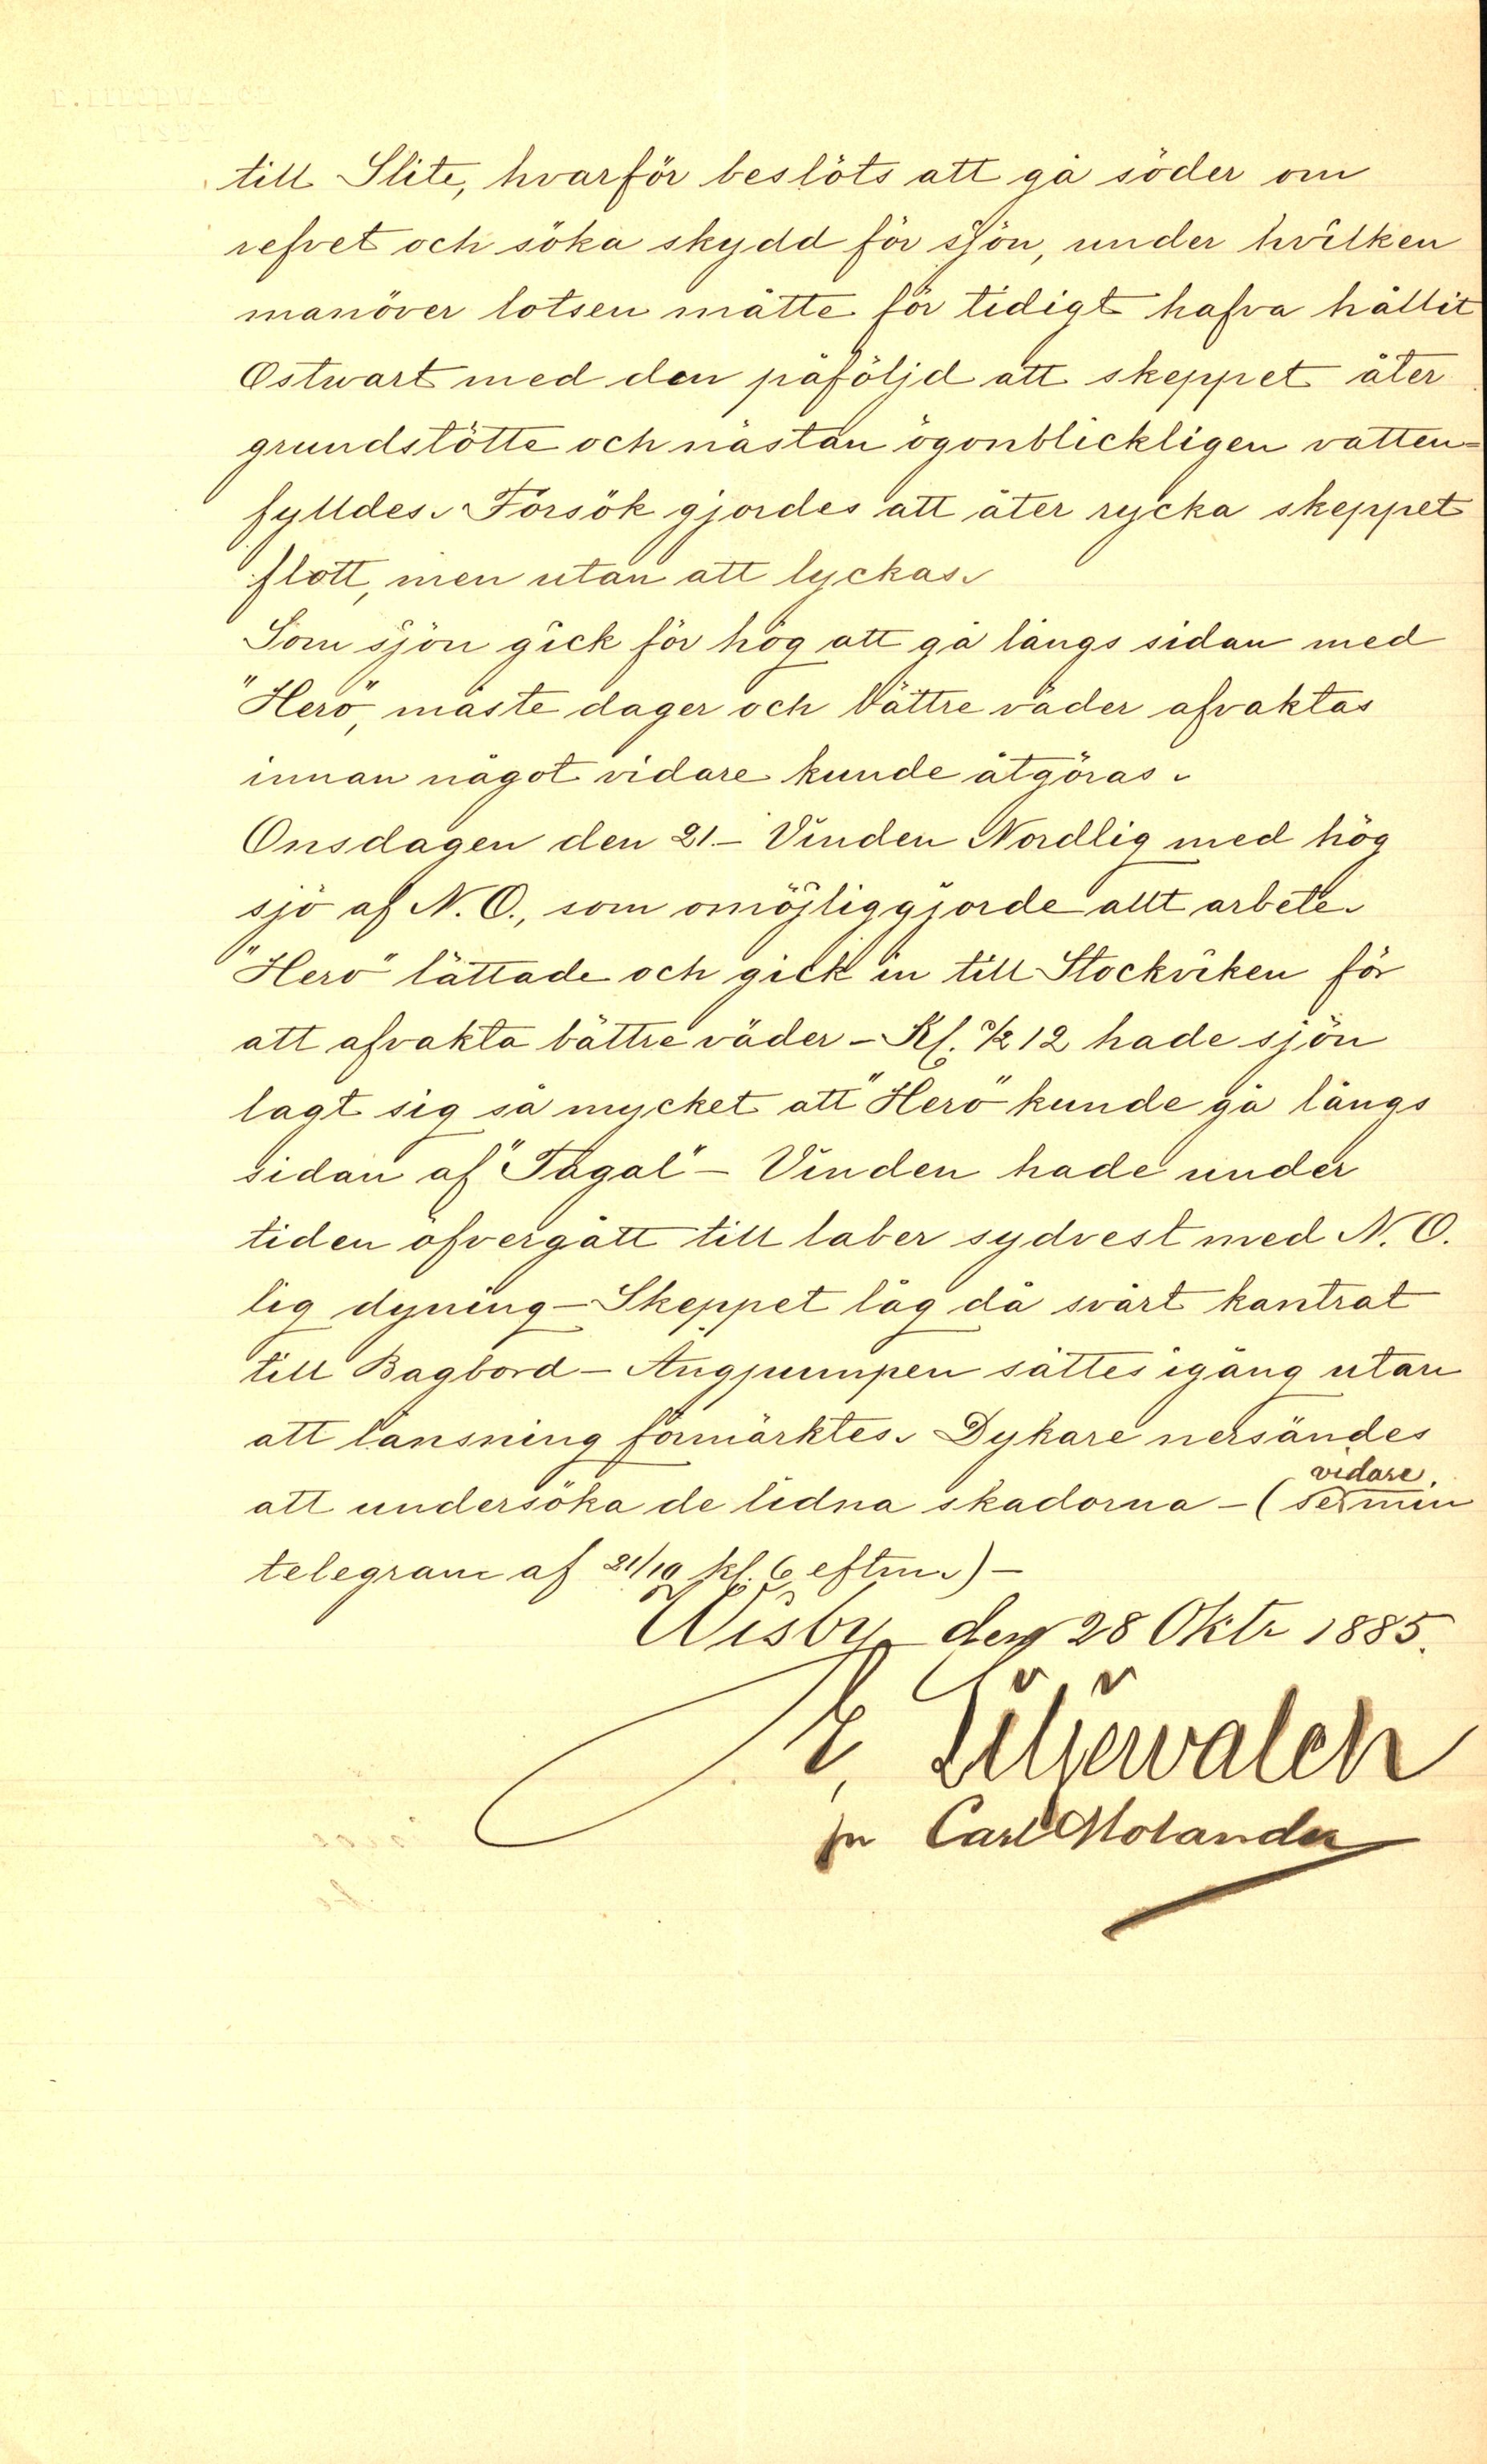 till Slite, hvarför beslöts att gå söder om
refvet och söka skydd för sjön, under hvilken
manöver lotsen måtte för tidigt hafva hållit
Ostwart med den påföljd att skeppet åter
grundstötte och nästan ögonblickligen vatten=
fylldes. Försök gjordes att åter rycka skeppet
flott, men utan att lyckas.
Som sjön gick för hög att gå långs sidan med
"Hero", måste dager och bättre väder afvaktas
innan något vidare kunde åtgöras.
Onsdagen den 21.– Vinden Nordlig med hög
sjö af N. O., som omöjliggjorde allt arbete.
"Hero" lättade och gick in till Stockviken för
att afvakta bättre väder – Kl. ½ 12 hade sjön
lagt sig så mycket att "Hero" kunde gå långs
sidan af "Tagal" – Vinden hade under
tiden öfvergått till laber sydvest med N. O.
lig dyning – Skeppet låg då svårt kantrat
till Bagbord – Ångpumpen sattes igång utan
att länsning förmärktes. Dykare nersändes
att undersöka de lidna skadorna – (se vidare min
telegram af 21/10 kl. 6 eftm.) –
Wisby den 28 Oktr 1885.
E. Liljewalch
pr Carl Molander